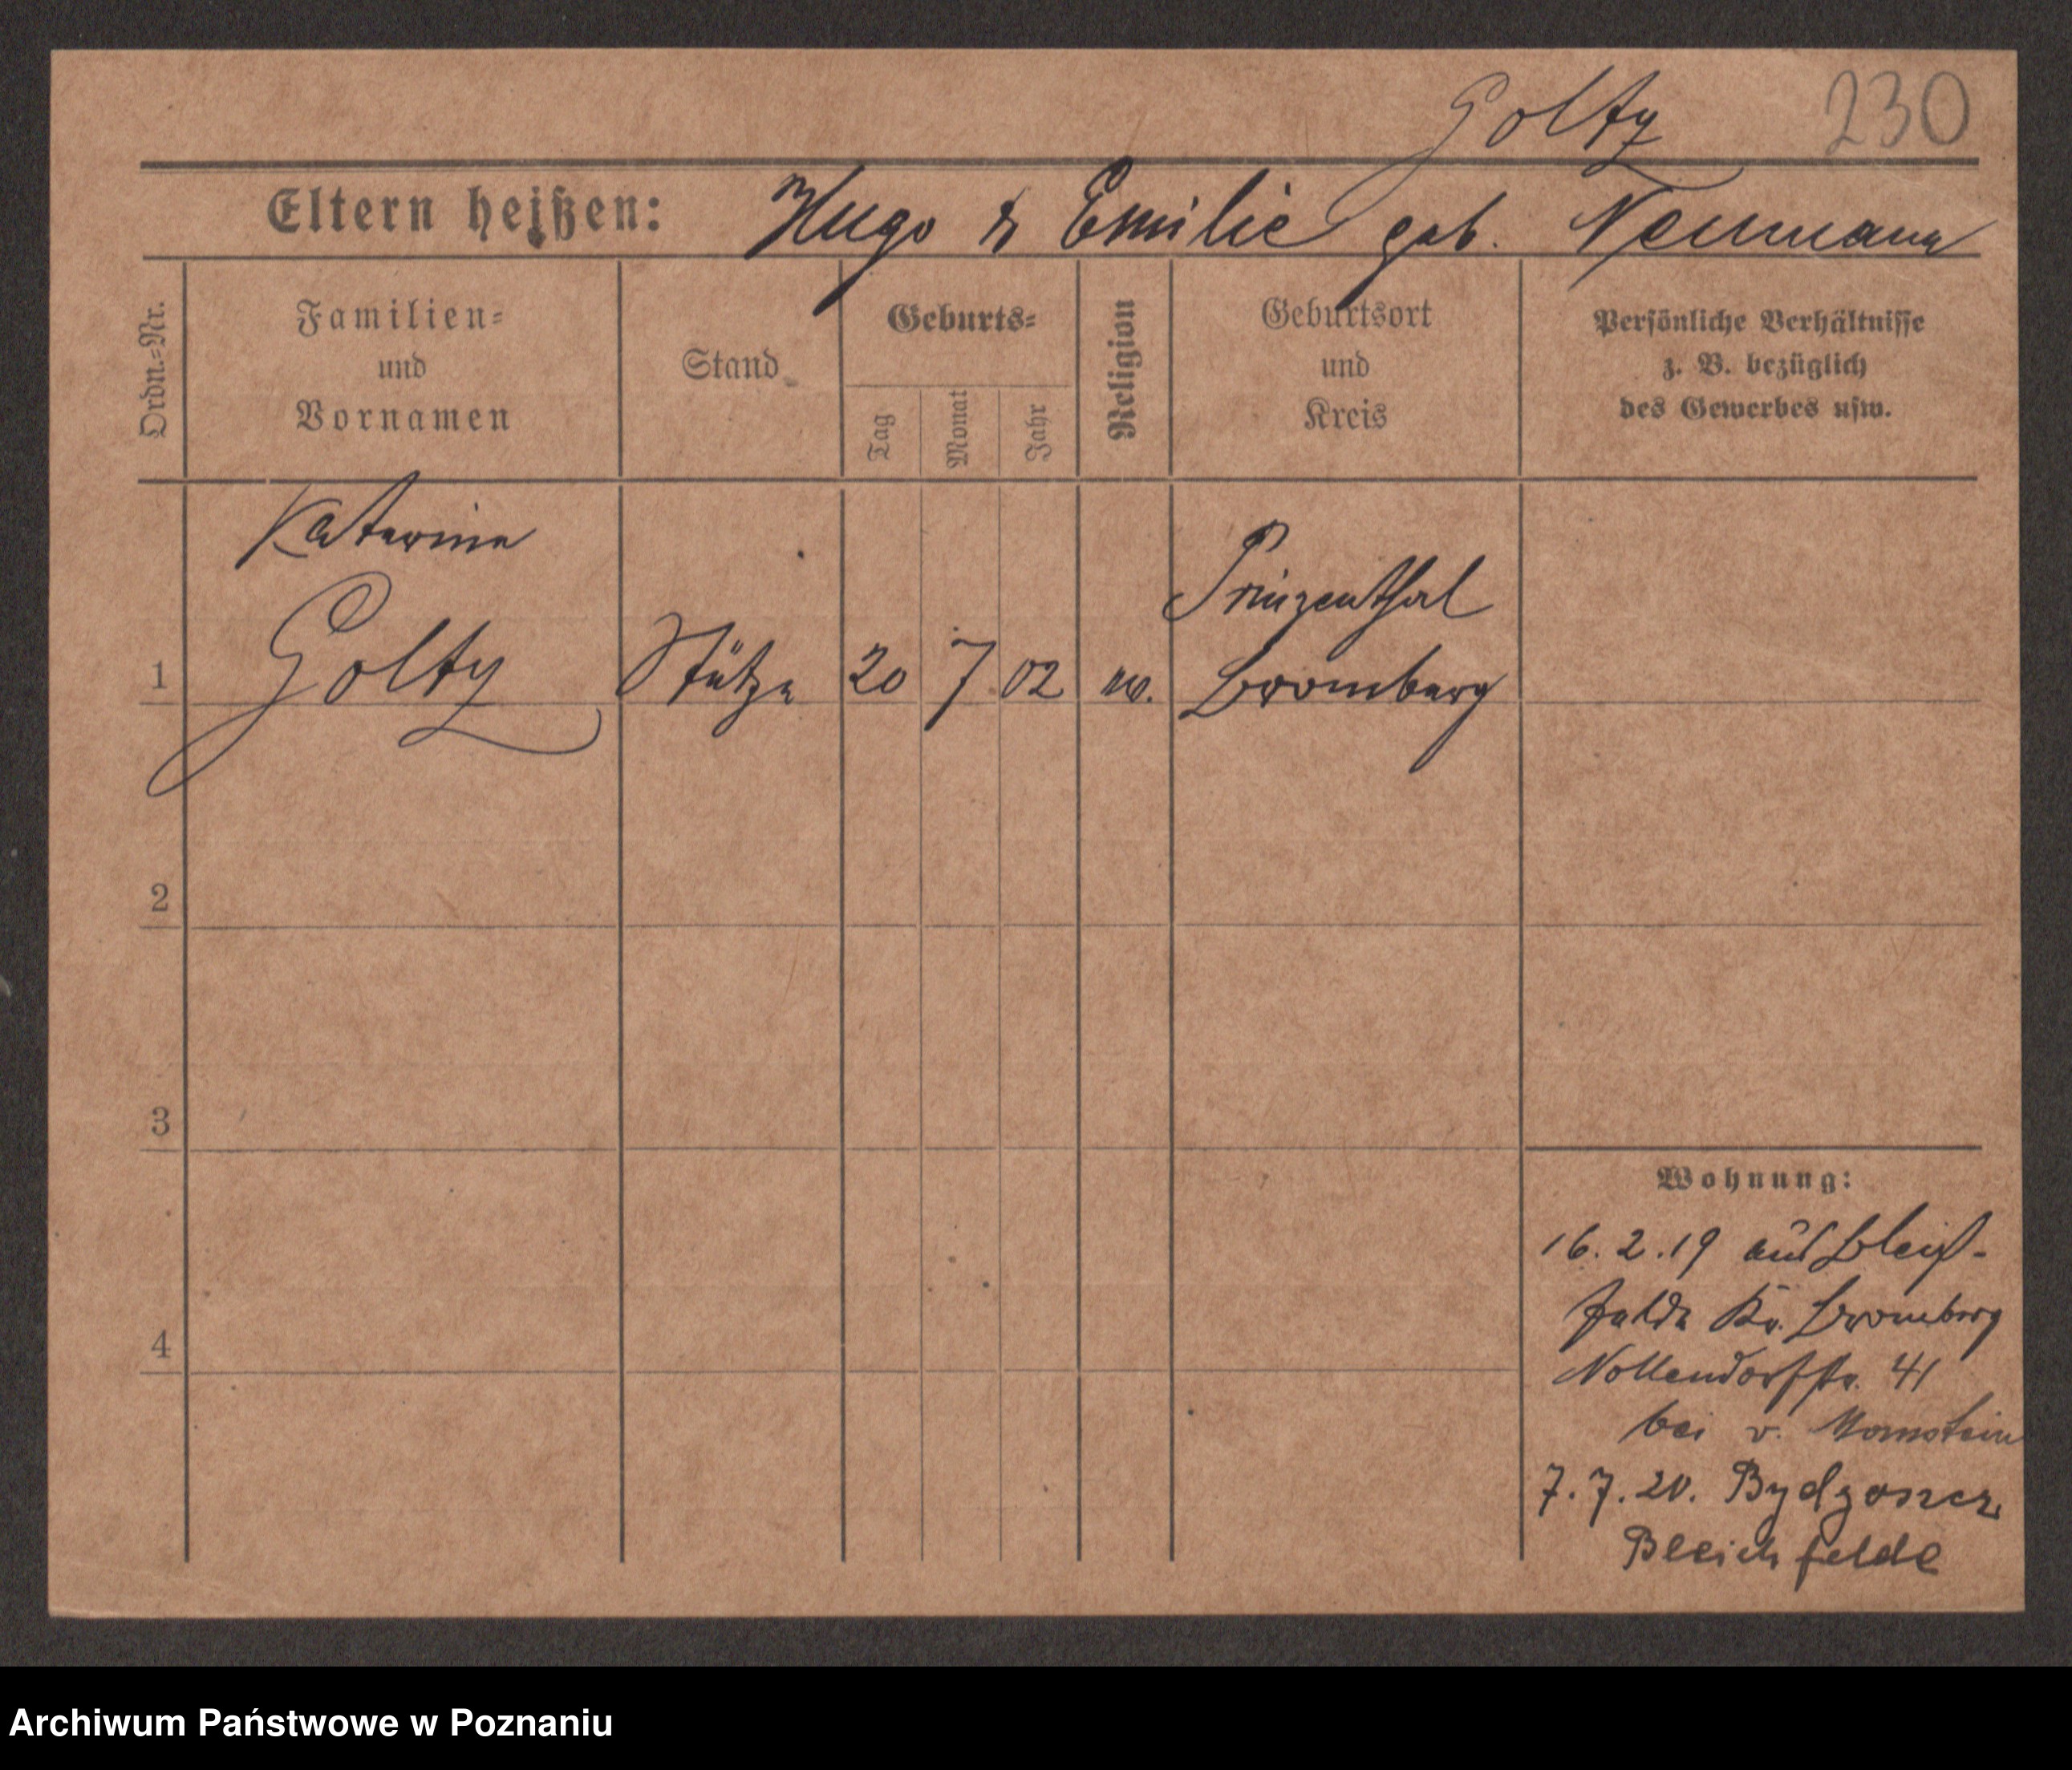 Goltz 230
Eltern heißen: Hugo & Emilie geb. Neumann
Ordn.=Nr.
Familien=
und
Vornamen
Stand
Geburts=
Tag
Monat
Jahr
Religion
Geburtsort
und
Kreis
Persönliche Verhältnisse
z. B. bezüglich
des Gewerbes usw.
Katerine
Prinzenthal
1 Goltz Stütze 20 7 02 ev. Bromberg
2
3
4
Wohnung:
16.2.19 aus Bleich-
felde Kr. Bromberg
Nollendorfstr. 41
bei v.
7.7.20. Bydgoszcz
Bleichfelde
Archiwum Państwowe w Poznaniu